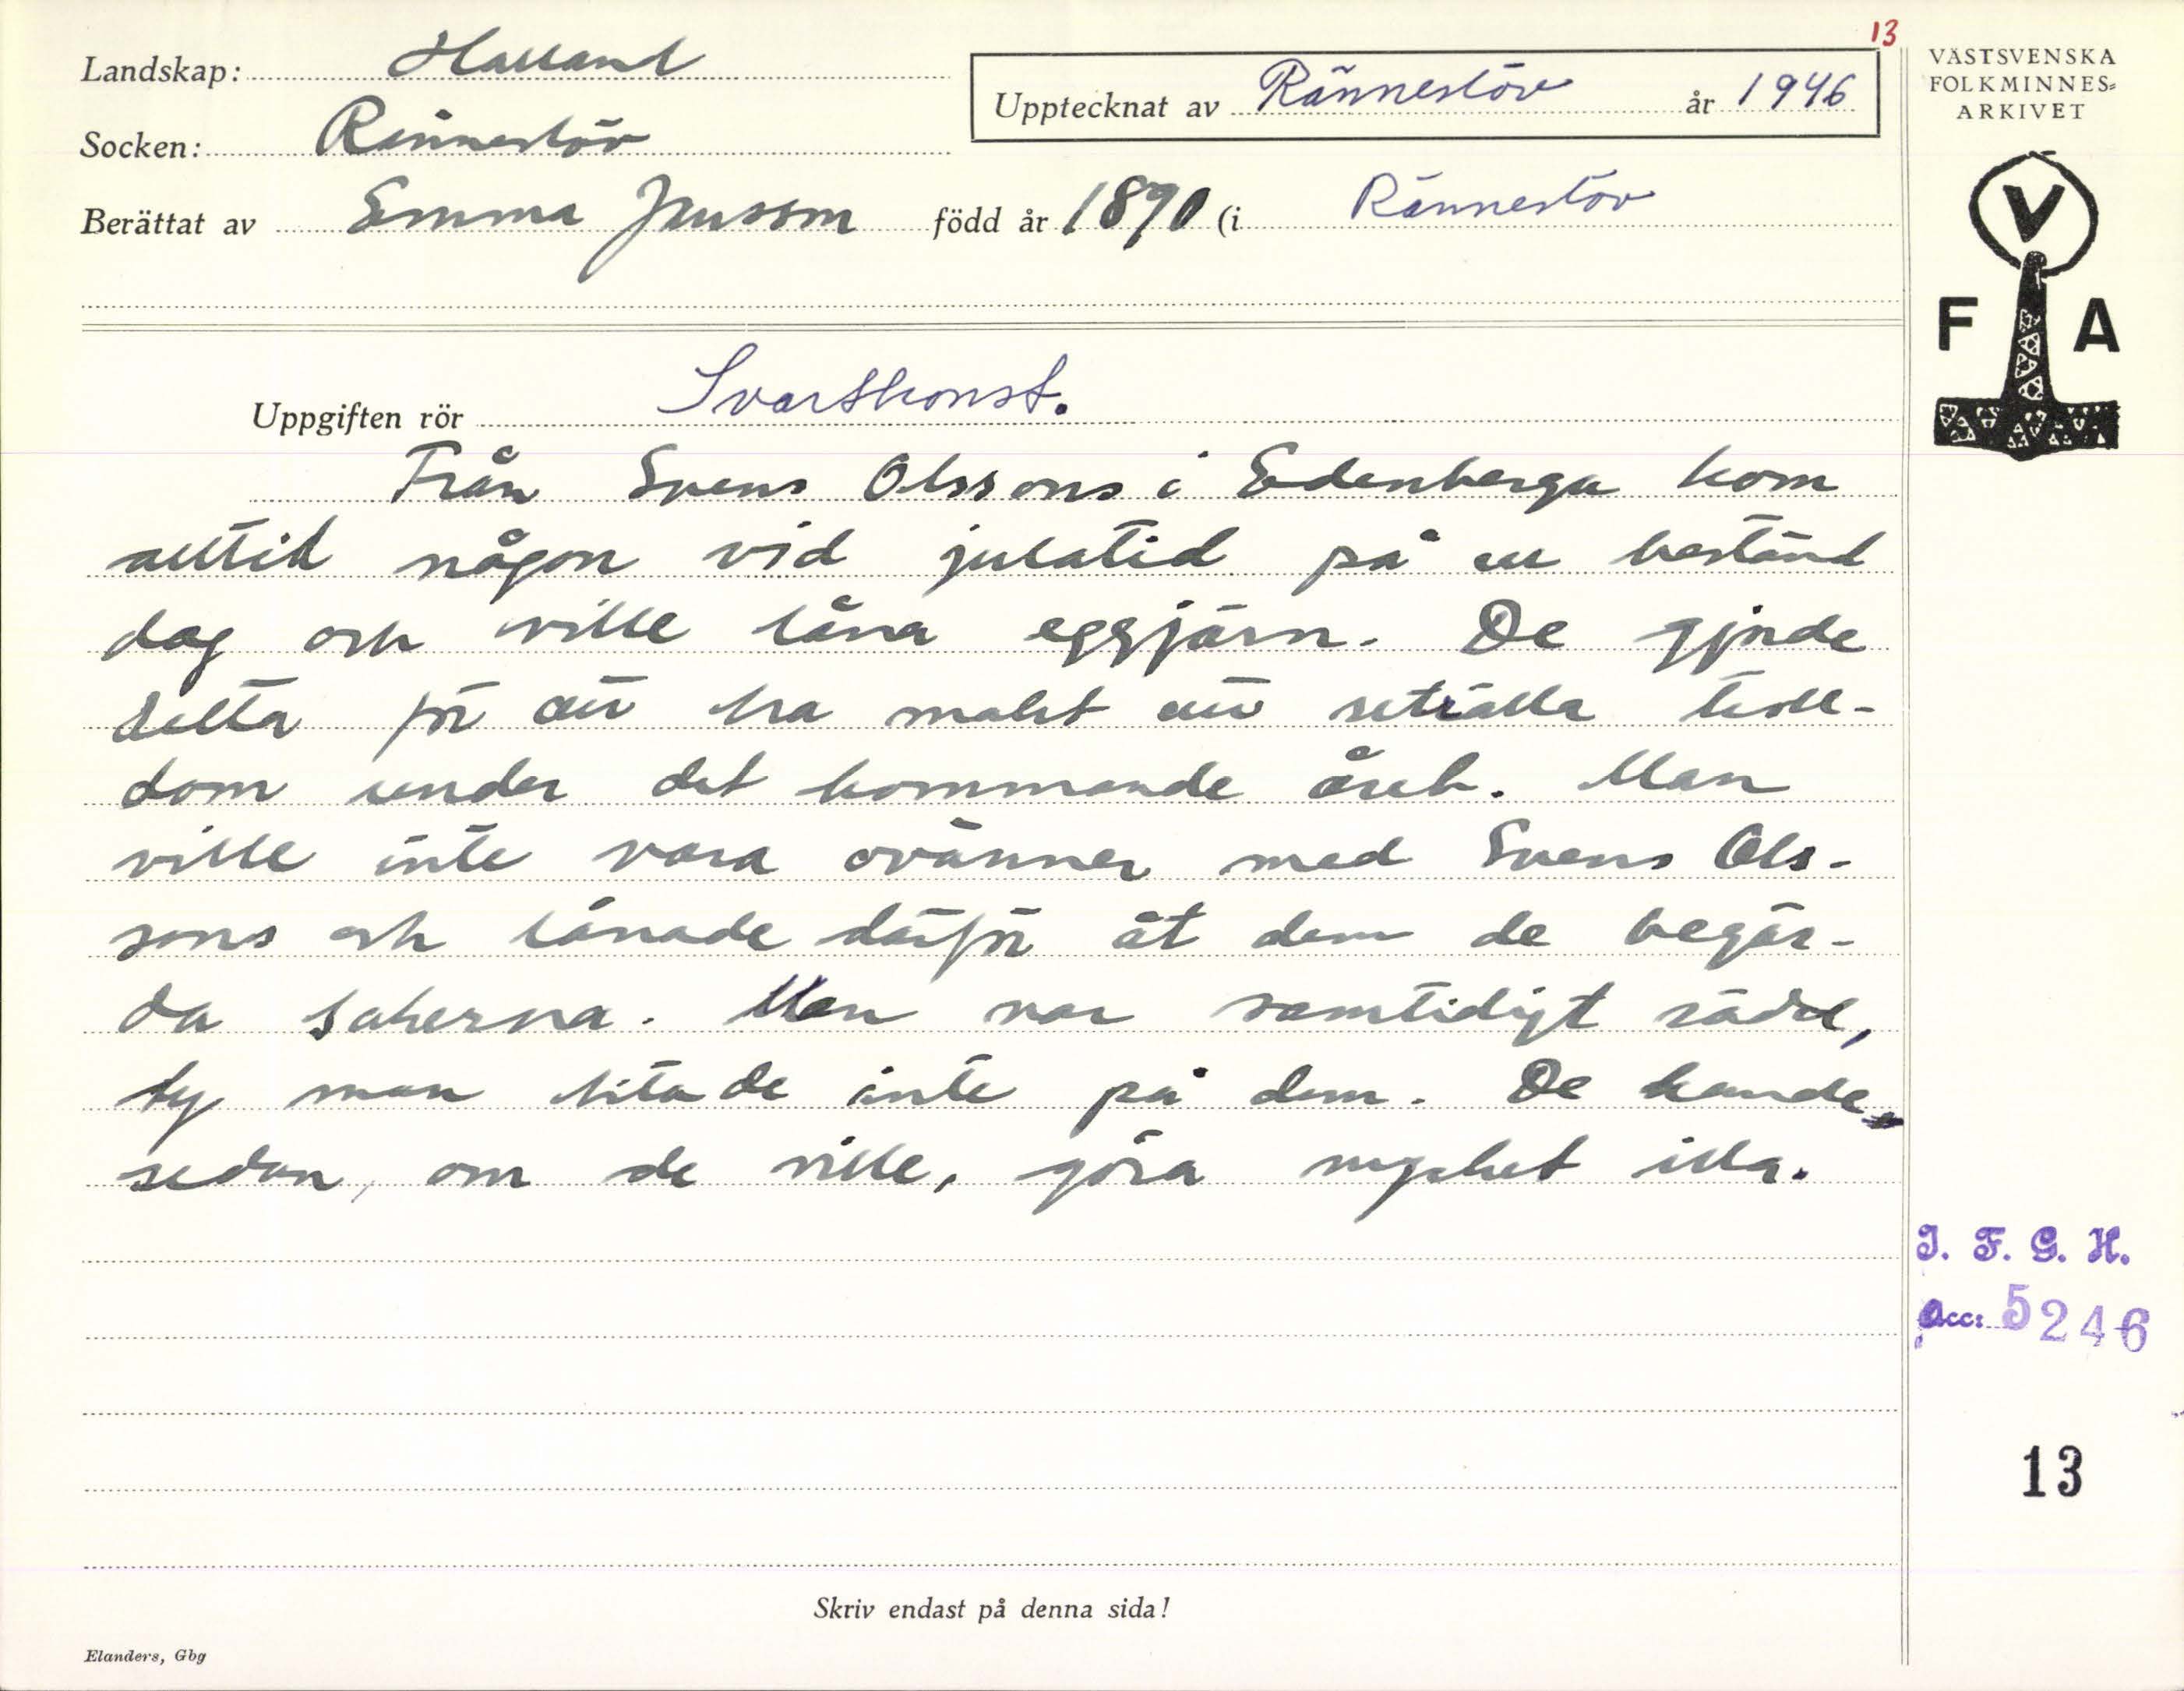 13
Landskap: Halland
Upptecknat av Ränneslöv år 1946
VÄSTSVENSKA
FOLKMINNES=
ARKIVET
Socken: Ränneslöv
Berättat av Emma Jansson född år 1890 (i Ränneslöv
V
F A
Uppgiften rör Svartkonst.
Från Svens Olssons i Edenberga kom
alltid någon vid julatid på en bestämd
dag och ville låna eggjärn. De gjorde
detta för att ha makt att uträtta troll-
dom under det kommande året. Man
ville inte vara ovänner med Svens Ols-
sons och lånade därför åt dem de begär-
da sakerna. Man var samtidigt rädd,
ty man litade inte på dem. De kunde
sedan, om de ville, göra mycket illa.
I. F. G. H.
Acc: 5246
13
Skriv endast på denna sida!
Elanders, Gbg